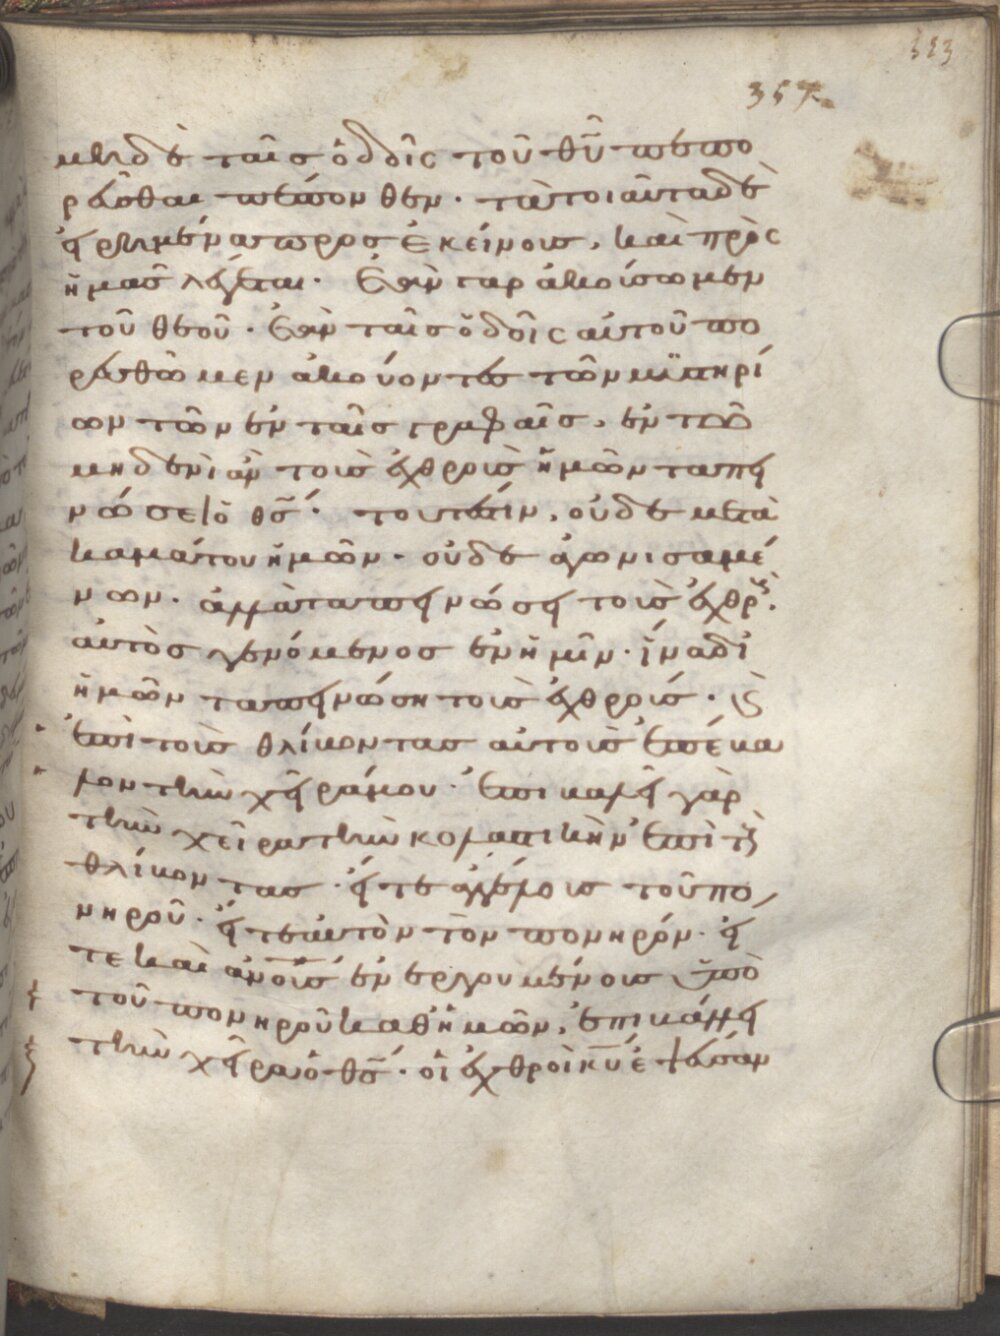 μηδὲ ταῖς ὁδοῖς τοῦ θυ πεπο
ρεῦσθαι πεπόνθεν· τὰ τοιαῦτα δὲ
εἰρημένα προς ἐκείνους, καὶ πρὸς
ἡμᾶς λέγεται· Ἐὰν γαρ ἀκούσωμεν
τοῦ θεοῦ· Ἐὰν ταῖς ὁδοῖς αὐτοῦ πο
ρευθῶμεν ἀκούοντες τῶν μυστηρί
ων τῶν ἐν ταῖς γραφαῖς, ἐν τῶ
μηδενὶ ἂν τοὺς ἐχθροὺς ἡμῶν ταπει
νώσει ὁ θς· τουτέστιν, οὐδὲ μετὰ
καμάτου ἡμῶν· οὐδὲ ἀγωνισαμέ
νων· ἀλλὰ ταπεινώσει τοὺς ἐχθρούς·
αὐτὸς γενόμενος ἐν ἡμῖν· ἵνα δι
ἡμῶν ταπεινώση τοὺς ἐχθρούς· καὶ
ἐπὶ τοὺς θλίβοντας αὐτοὺς ἐπέβα
λον τὴν χεῖρά μου· ἐπιβαλεῖ γὰρ
τὴν χεῖρα τὴν κολαστικὴν ἐπὶ τοὺς
θλίβοντας· εἴτε ἀγγέλους τοῦ πο
νηροῦ· εἴτε αὐτὸν τὸν πονηρόν· εἴ
τε καὶ ἀνους ἐνεργουμένους ὑπὸ
τοῦ πονηροῦ καθ ἡμῶν, ἐπιβάλλει
τὴν χεῖρα ὁ θς· οἱ ἐχθροὶ κυ ἐψεύσαν